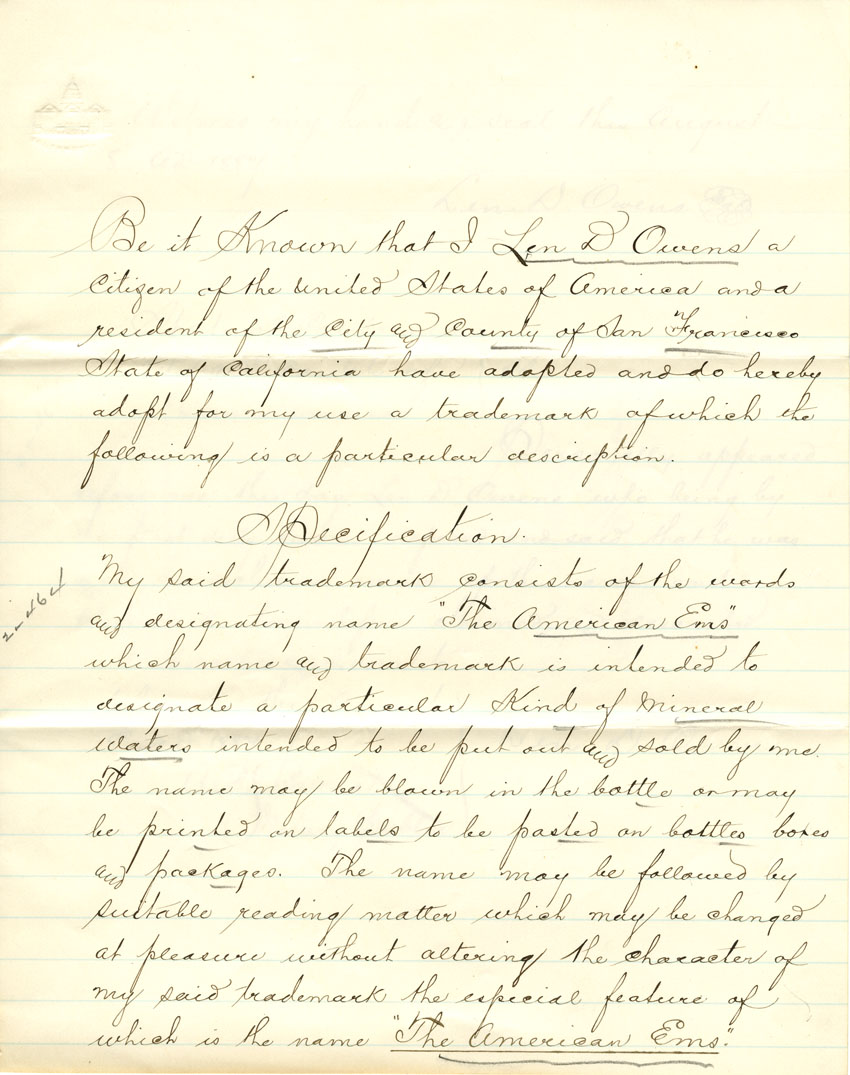 Be it Known that I Len D Owens a
Citizen of the United States of America and a
resident of the City and County of San Francisco
State of California have adopted and do hereby
adopt for my use a trademark of which the
following is a particular description.
Specification.
My said trademark consists of the words
and designating name "The American Ems"
which name and trademark is intended to
designate a particular Kind of Mineral
waters intended to be put out and sold by me.
The name may be blown in the bottle or may
be printed on labels to be pasted on bottles boxes
and packages. The name may be followed by
suitable reading matter which may be changed
at pleasure without altering the character of
my said trademark the especial feature of
which is the name "The American Ems".
2-464